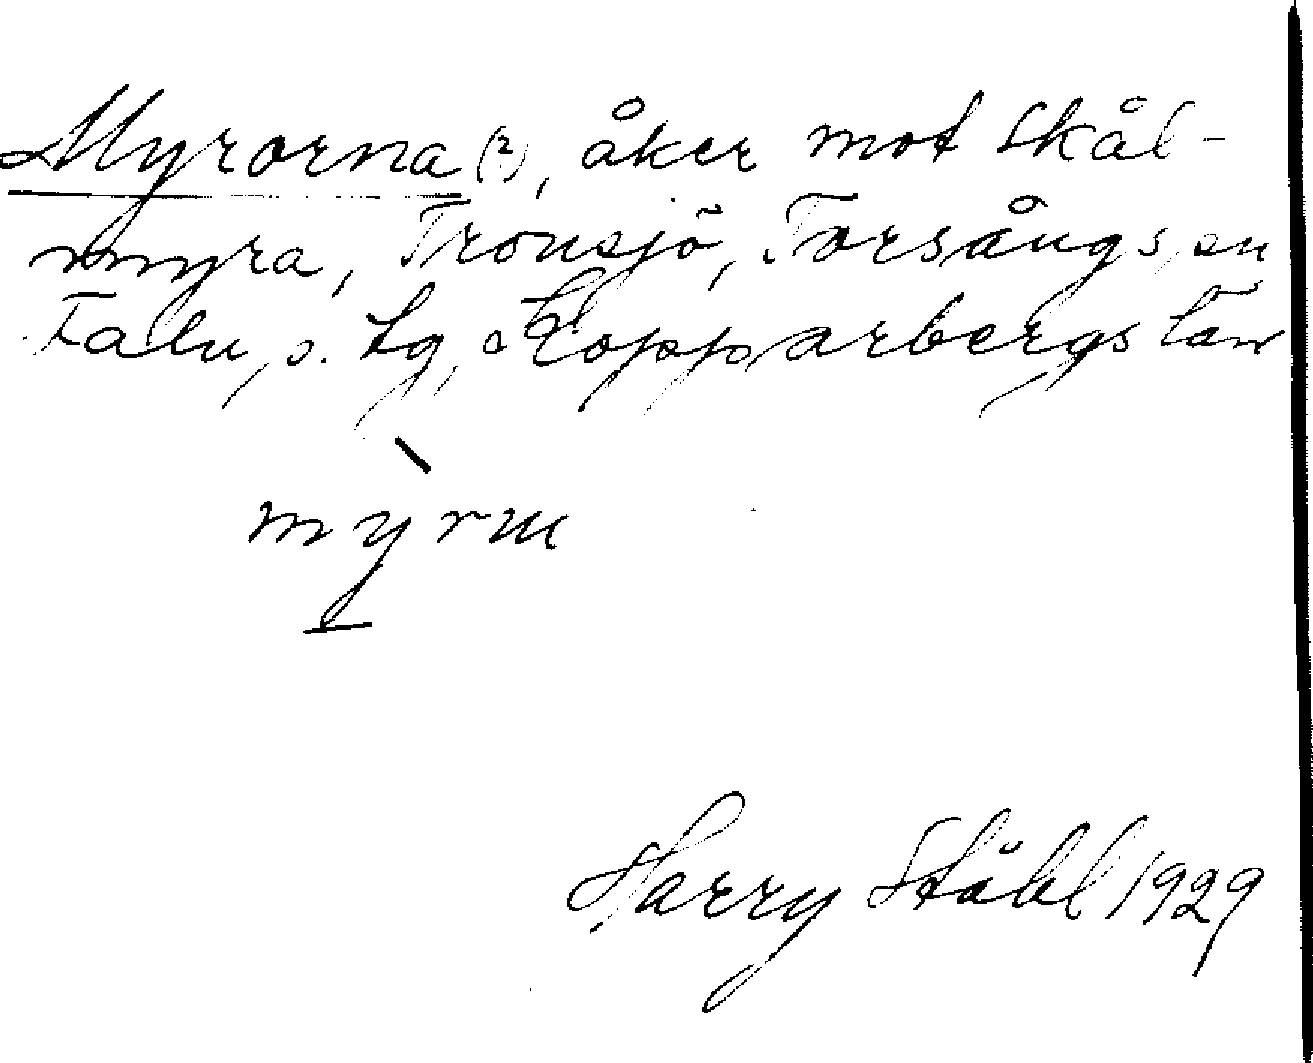 Myrorna (?), åker mot Skål-
myra, Tronsjö, Torsångs sn
Falu s. tg, Kopparbergs län
myrɯ
Harry Ståhl 1929